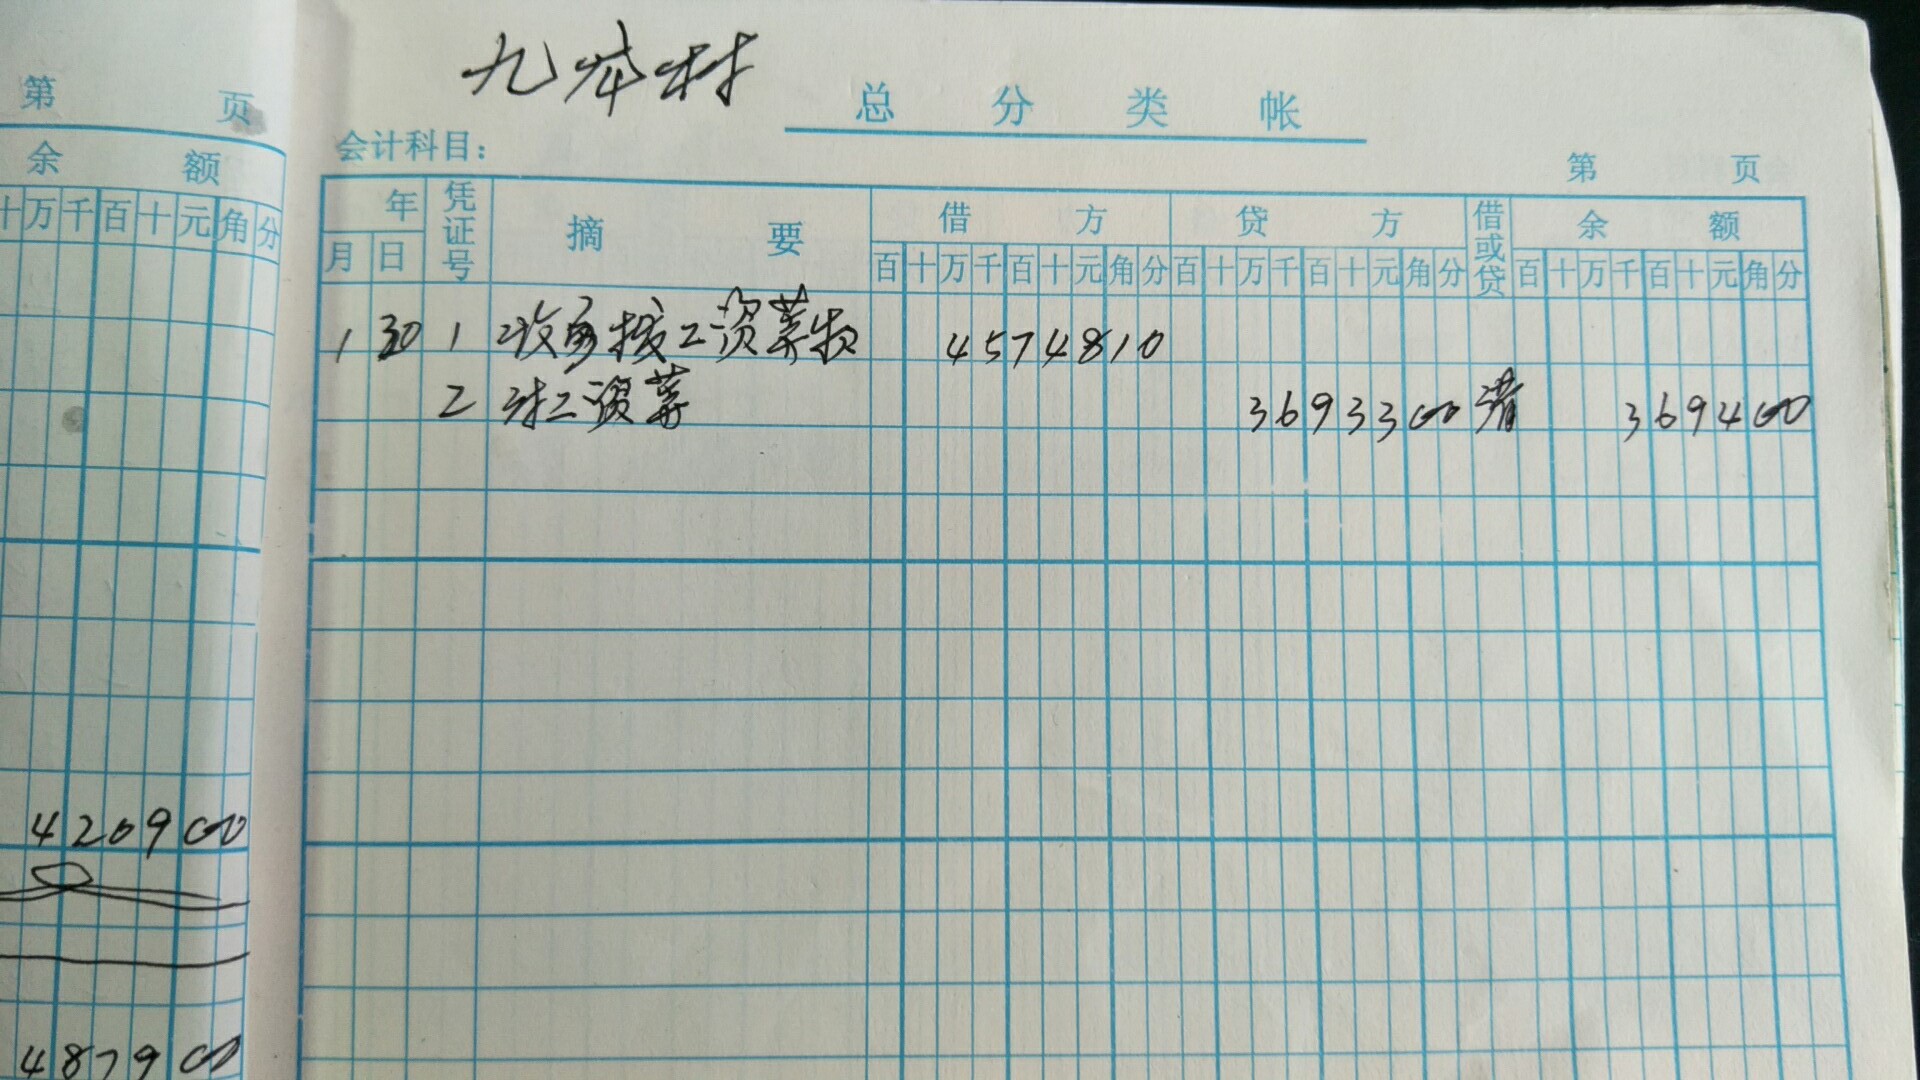 第 页
余 额
十 万 千 百 十 元 角 分
4209 00
4879 00
九 村
总 分 类 帐
会计科目：
第 页
年 凭证号 摘 要 借 方 贷 方 借或贷 余 额
月 日 百 十 万 千 百 十 元 角 分 百 十 万 千 百 十 元 角 分 百 十 万 千 百 十 元 角 分
1 30 1 收 拨工资等 4574810
2 工资等 3693300 369400